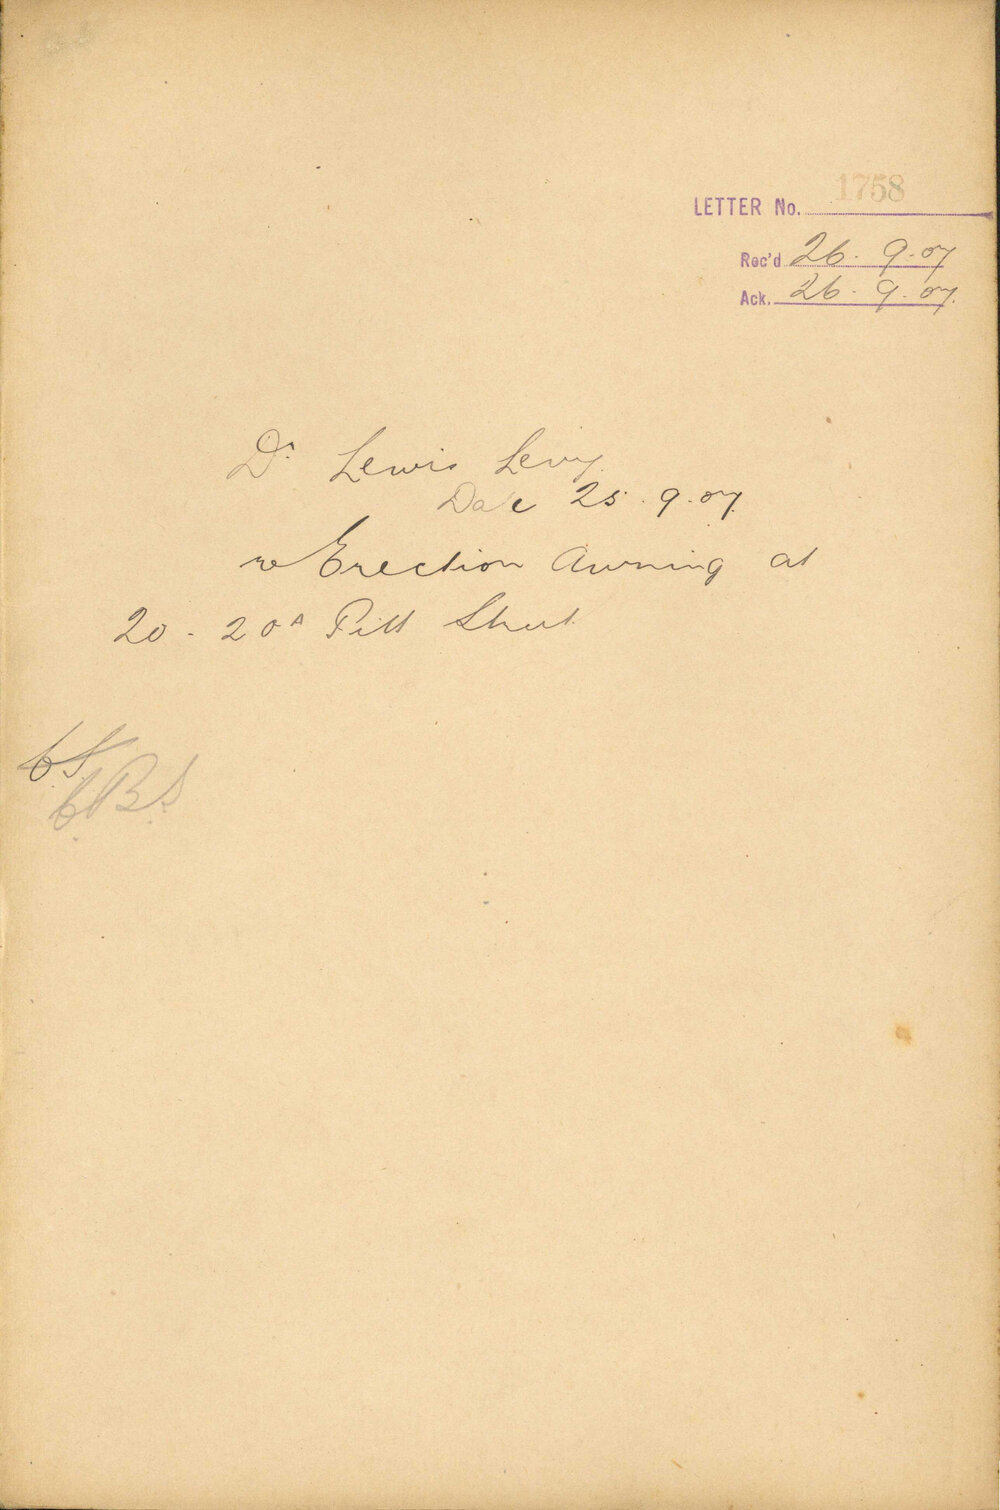 1758
LETTER No.
Rec'd 26. 9. 07
Ack. 26. 9. 07.
Dr Lewis Levy
Date 25. 9. 07.
re Erection Awning at
20 - 20A Pitt Street
CS
CBS